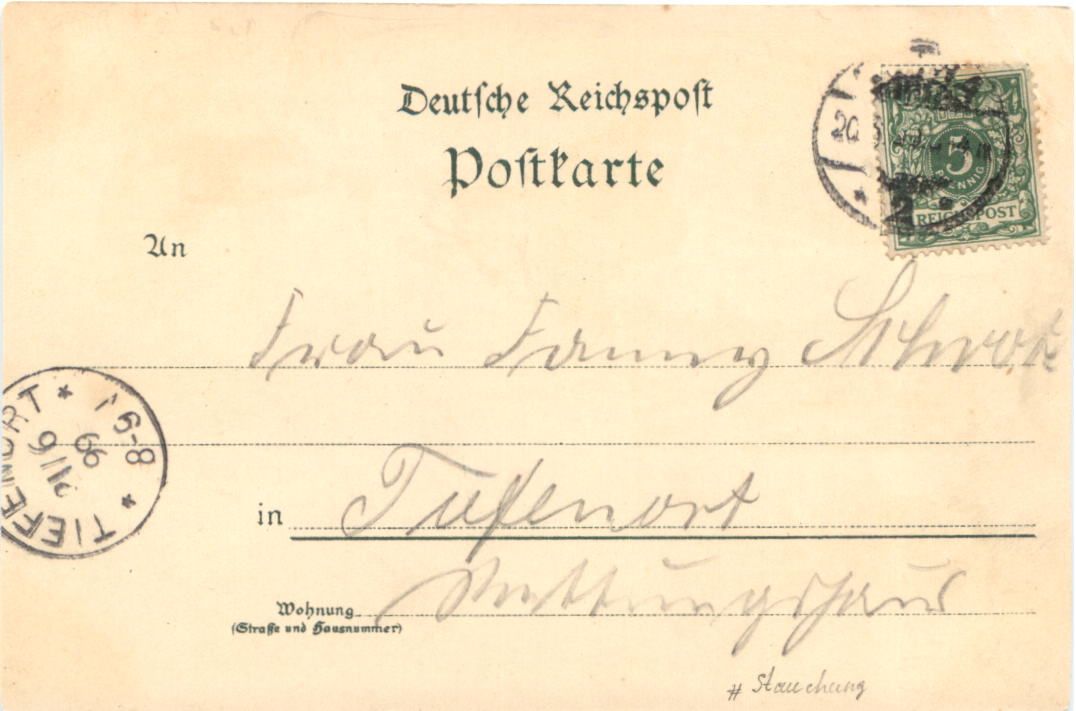 Deutsche Reichspost
Postkarte
5
PFENNIG
REICHSPOST
An
Frau Fanny
in Tiefenort
Rettungshaus
Wohnung
(Straße und Hausnummer)
TIEFENORT
* 6-8 *
99
# Stauchung